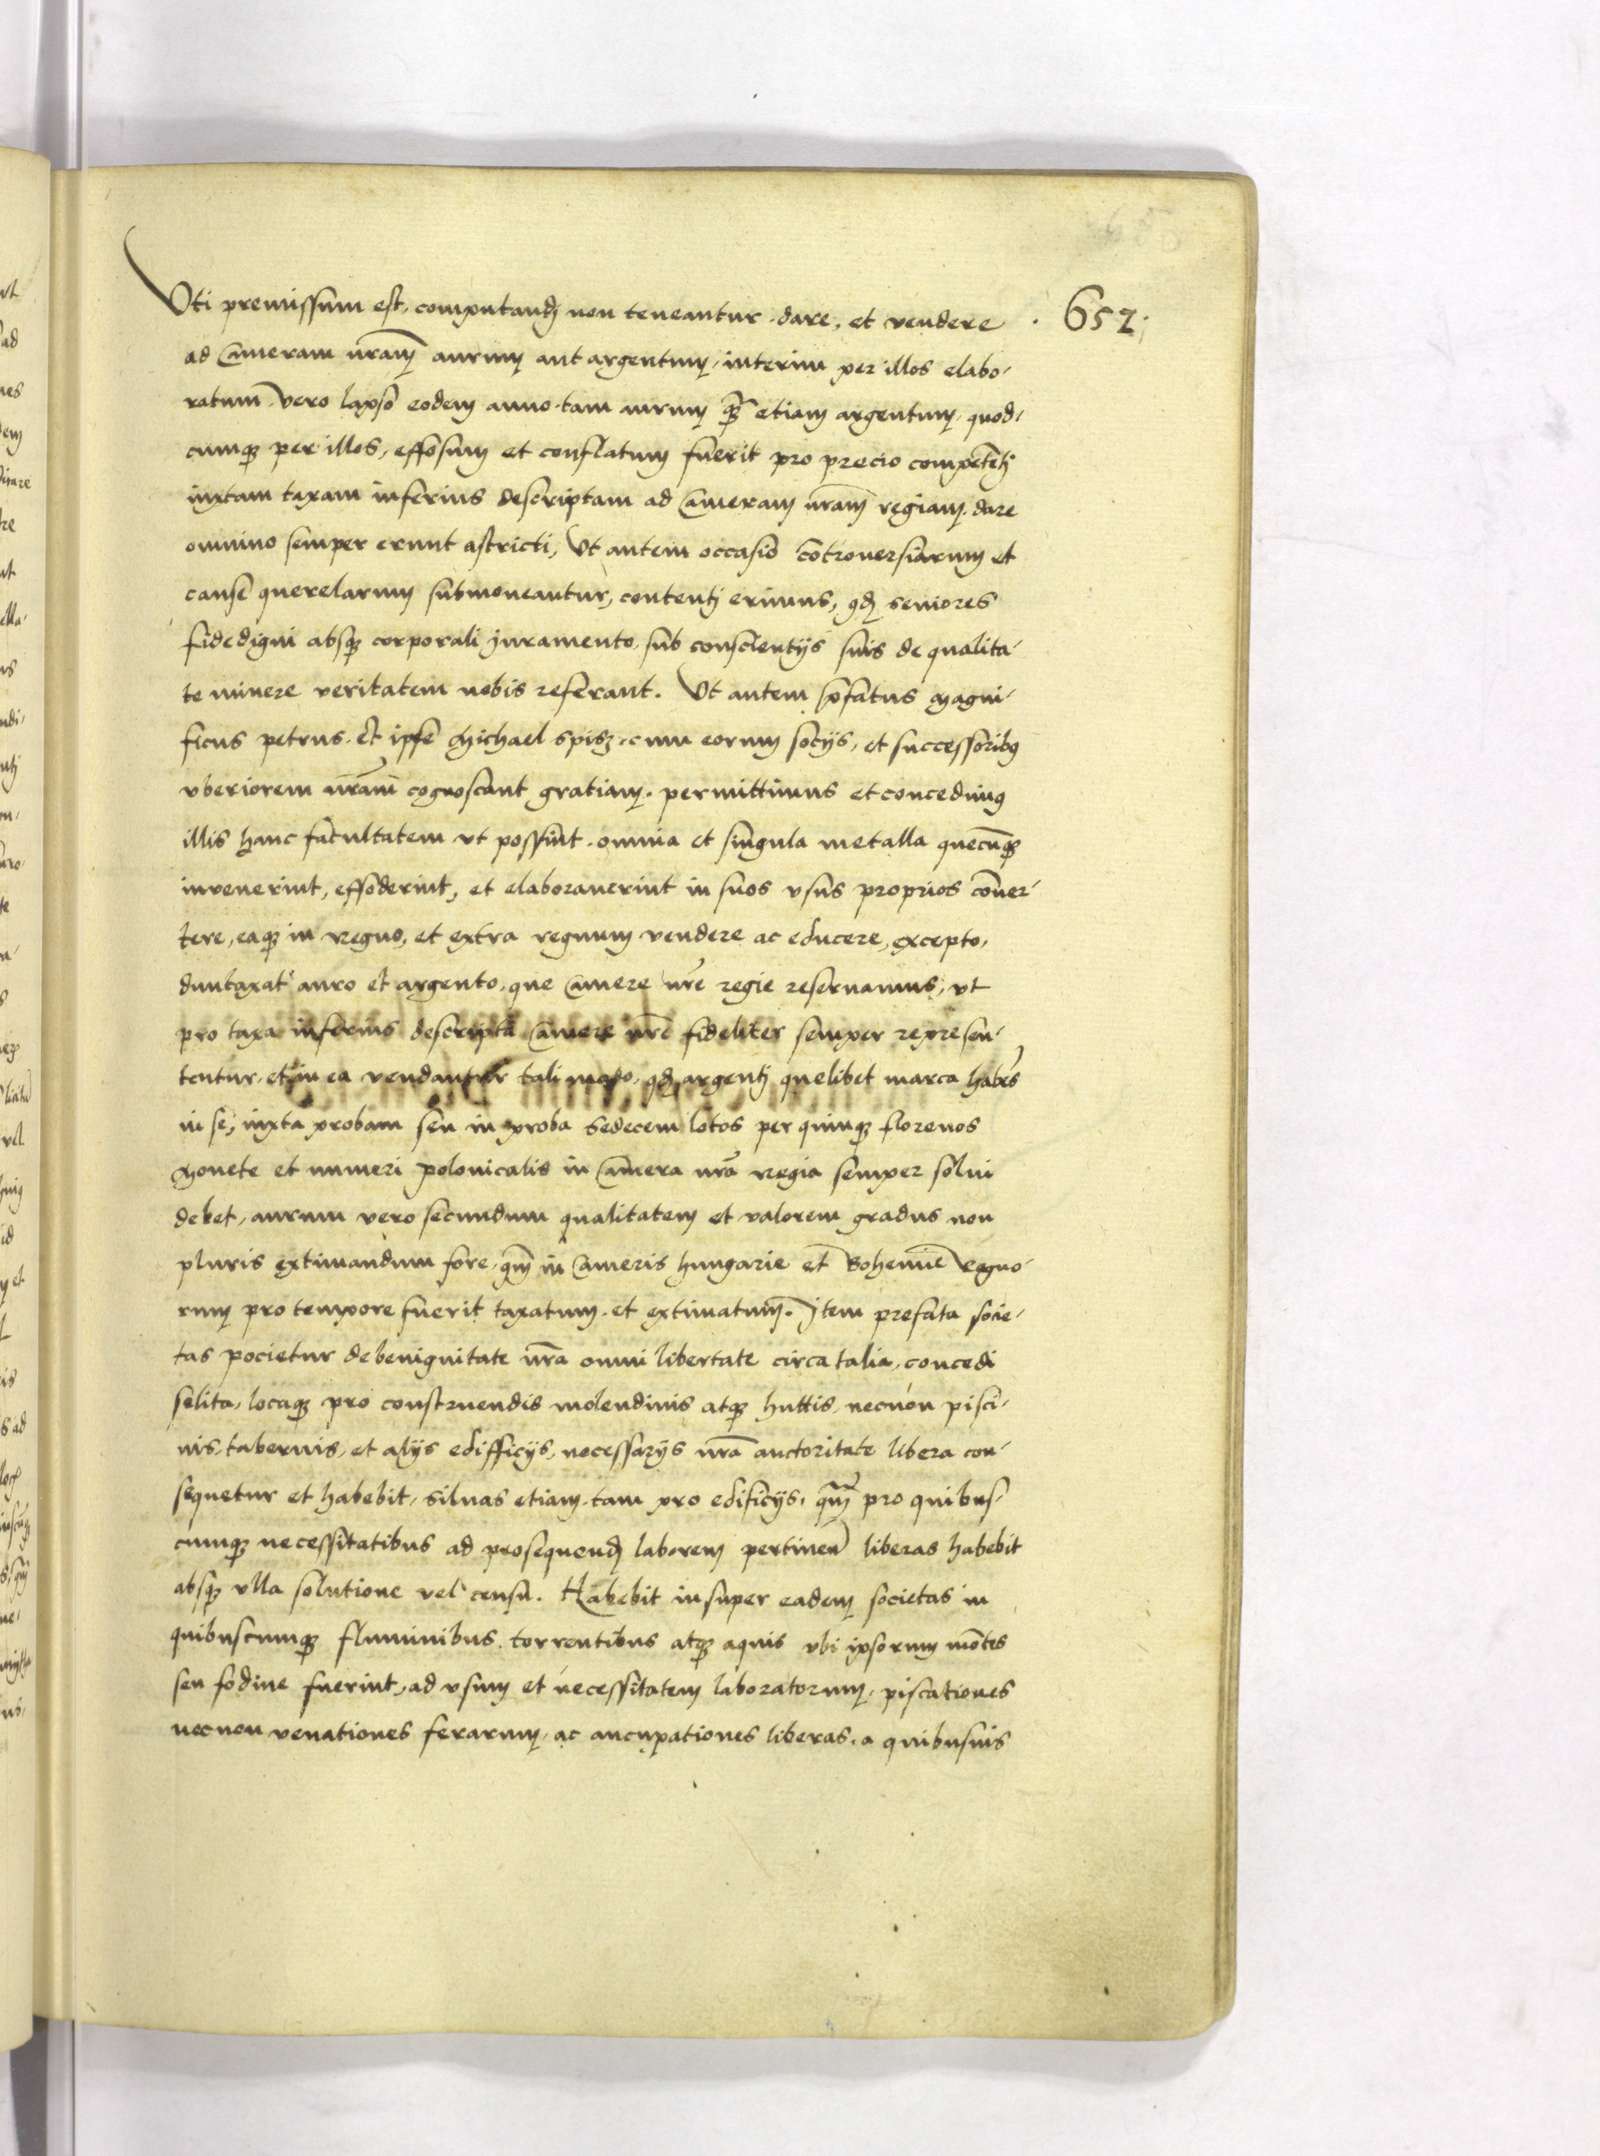 652
Vti premissum est, computand̄ non teneantur dare, et vendere
ad Cameram nr̄am aurum aut argentum, interim per illos elabo-
ratum. Vero lapso eodem anno tam aurum q̄ etiam argentum, quod-
cumq; per illos, effosum et conflatum fuerit pro precio competētj
iuxtam taxam inferius descriptam ad Cameram nr̄am regiam dare
omnino semper erunt astricti, Vt autem occasio cōtrouersiarum et
cause querelarum submoueantur, contentj erimus, qd̄ seniores
fidedigni absq; corporali juramento, sub conscientijs suis de qualita-
te minere veritatem nobis referant. Vt autem p̄fatus Magni-
ficus petrus et ipse Michael Spisz cum eorum socijs, et successoribꝰ
vberiorem nr̄am cognoscant gratiam, permittimus et concedimꝰ
illis hanc facultatem vt possint omnia et singula metalla quecūq;
inuenerint, effoderint, et elaborauerint in suos vsus proprios cōuer-
tere, eaq; in regno, et extra regnum vendere ac educere, excepto,
duntaxat auro et argento, que Camere nr̄e regie reseruamus, vt
pro taxa inferius descripta Camere nr̄e fideliter semper represen-
tentur, et in ea vendantur tali modo, qd̄ argentj quelibet marca habēs
in se, iuxta probam seu in proba sedecem lotos per quinq; florenos
Monete et numeri polonicalis in Camera nr̄a regia semper solui
debet, aurum vero secundum qualitatem et valorem gradus non
pluris extimandum fore, qm̄ in Cameris hungarie et Bohemie regno-
rum pro tempore fuerit taxatum et extimatum. Jtem prefata socie-
tas pocietur de benignitate nr̄a omni libertate circa talia, concedi
solita, locaq; pro construendis molendinis atq; huttis necnon pisci-
nis, tabernis, et alijs edifficijs, necessarijs nr̄a auctoritate libera con-
sequetur et habebit, siluas etiam tam pro edificijs, qm̄ pro quibus-
cumq; necessitatibus ad prosequend̄ laborem pertinen̄ liberas habebit
absq; vlla solutione vel censu. Habebit insuper eadem societas in
quibuscumq; fluminibus, torrentibus atq; aquis vbi ipsorum mōtes
seu fodine fuerint, ad vsum et necessitatem laboratorum, piscationes
necnon venationes ferarum, ac aucupationes liberas, a quibusuis